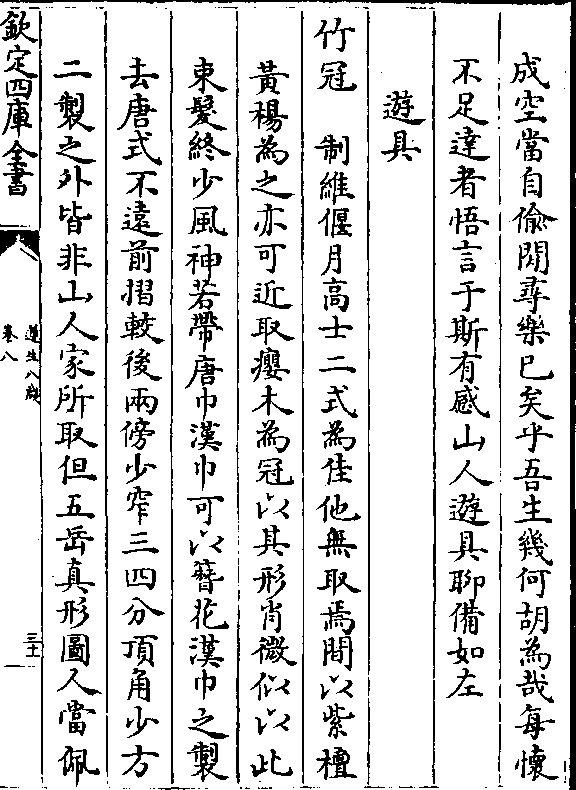 成空當自偷閒尋樂已矣乎吾生幾何胡為哉每懷
不足達者悟言于斯有感山人遊具聊備如左
遊具
竹冠　制維偃月高士二式為佳他無取焉間以紫檀
黃楊為之亦可近取癭木為冠以其形肖微似以此
束髮終少風神若帶唐巾漢巾可以簪花漢巾之製
去唐式不遠前摺較後兩傍少窄三四分頂角少方
二製之外皆非山人家所取但五岳真形圖人當佩
欽定四庫全書
遵生八牋
卷八
三十一